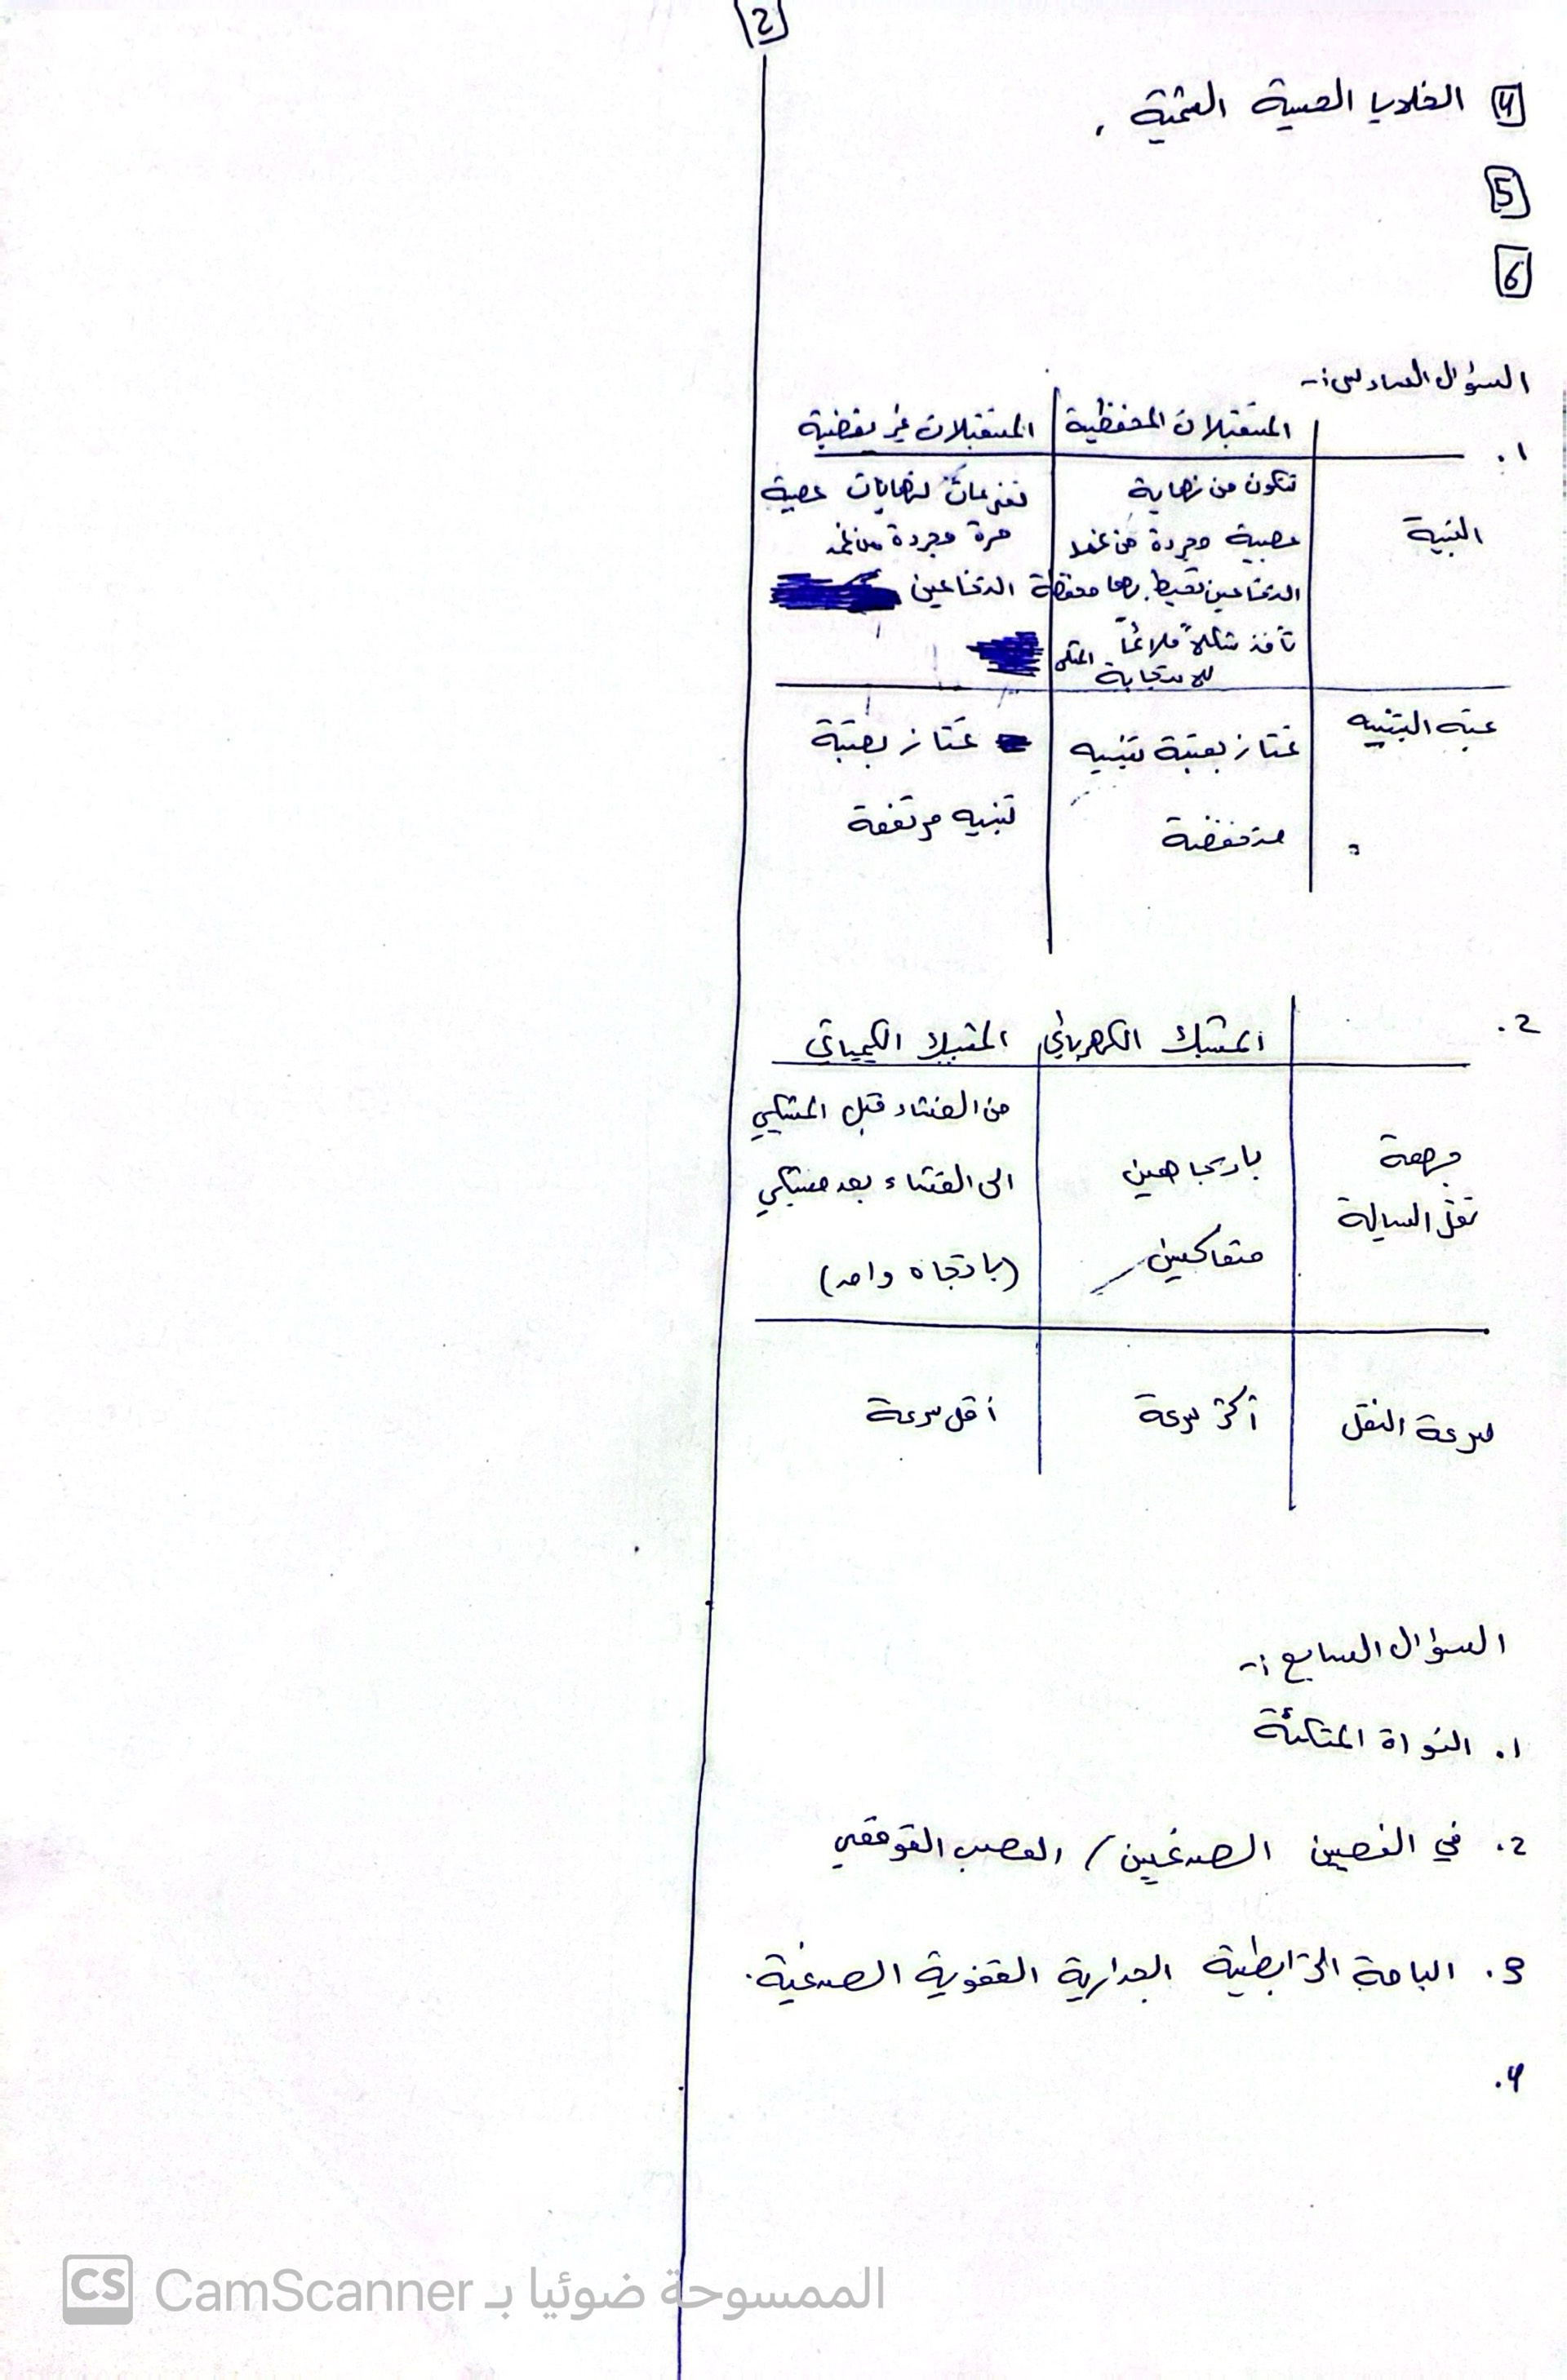 2
4 الخلايا الحسية القمية .
5
6
السؤال السادس :-
1. المستقبلات المحفظية المستقبلات غير محفظية
البنية
تتكون من نهاية
عصبية مجردة من غمد
الدخاعين تحيط بها محفظة
تأخذ شكلاً ملائماً
للاستجابة
تفرعات لنهايات عصبية
حرة مجردة من غمد
الدخاعين
عتبة التنبيه
تمتاز بعتبة تنبيه
منخفضة
تمتاز بعتبة
تنبيه مرتفعة
2. المشبك الكهربائي المشبك الكيميائي
وجهة
نقل السيالة
باتجاهين
متعاكسين
من الغشاء قبل المشبكي
الى الغشاء بعد مشبكي
(باتجاه واحد)
سرعة النقل أكثر سرعة أقل سرعة
السؤال السابع :-
1. النواة المتكئة
2. في الفصين الصدغيين / العصب القوقعي
3. الباحة الترابطية الجدارية القفوية الصدغية.
4.
CS CamScanner الممسوحة ضوئيا بـ